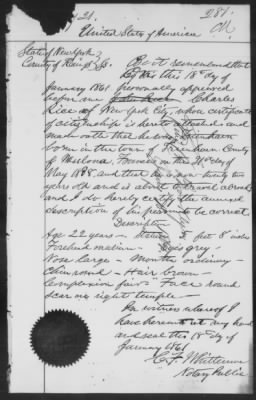 21.
281.
United States of America
State of New York }
County of Kings } SS.
Be it remembered that
on this 18th day of
January 1861 personally appeared
before me Charles
Rice of New York City whose certificate
of citizenship is hereto attached and
made oath that he was
born in the town of County
of Prussia on the day of
May and that he is now twenty two
years old and is about to travel abroad
and I do hereby certify the annexed
description of his person to be correct.
Description
Age 22 years – Stature 5 feet 8 inches
Forehead medium – Eyes grey –
Nose large – Mouth ordinary –
Chin round – Hair brown –
Complexion fair Face round
scar on right temple –
In witness whereof I
have hereunto set my hand
and seal this 18th day of
January 1861
C. F. Whittemore
Notary Public